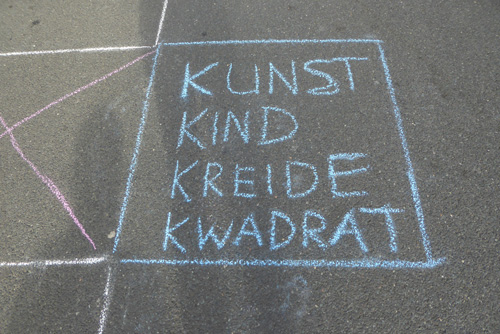 KUNST
KIND
KREIDE
KWADRAT